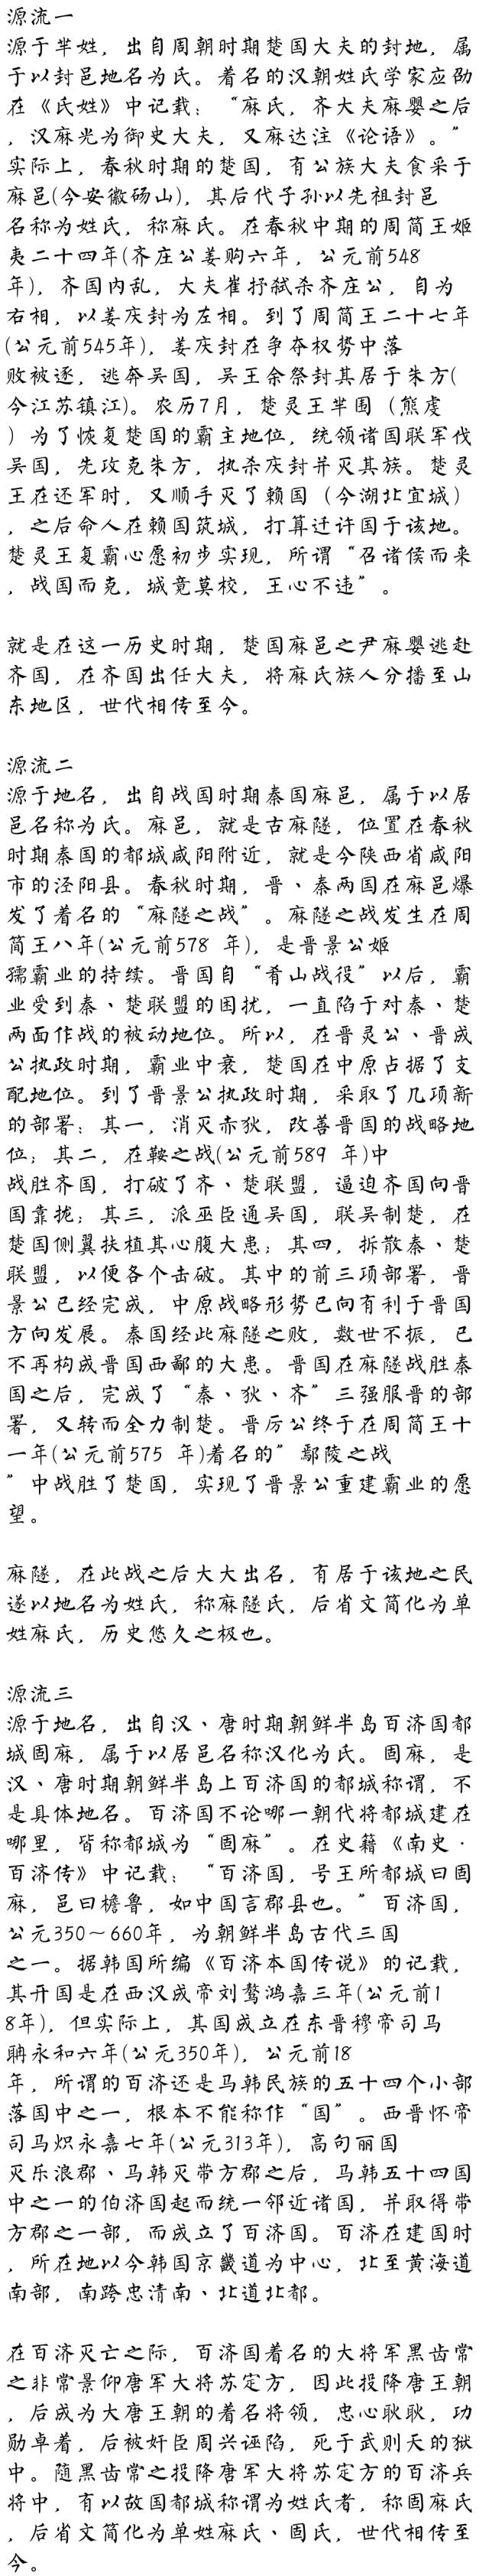 源流一
源于芈姓，出自周朝时期楚国大夫的封地，属
于以封邑地名为氏。着名的汉朝姓氏学家应劭
在《氏姓》中记载：“麻氏，齐大夫麻婴之后
，汉麻光为御史大夫，又麻达注《论语》。”
实际上，春秋时期的楚国，有公族大夫食采于
麻邑(今安徽砀山)，其后代子孙以先祖封邑
名称为姓氏，称麻氏。在春秋中期的周简王姬
夷二十四年(齐庄公姜购六年，公元前548
年)，齐国内乱，大夫崔抒弑杀齐庄公，自为
右相，以姜庆封为左相。到了周简王二十七年
(公元前545年)，姜庆封在争夺权势中落
败被逐，逃奔吴国，吴王余祭封其居于朱方(
今江苏镇江)。农历7月，楚灵王芈围（熊虔
）为了恢复楚国的霸主地位，统领诸国联军伐
吴国，先攻克朱方，执杀庆封并灭其族。楚灵
王在还军时，又顺手灭了赖国（今湖北宜城）
，之后命人在赖国筑城，打算迁许国于该地。
楚灵王复霸心愿初步实现，所谓“召诸侯而来
，战国而克，城竟莫校，王心不违”。
就是在这一历史时期，楚国麻邑之尹麻婴逃赴
齐国，在齐国出任大夫，将麻氏族人分播至山
东地区，世代相传至今。
源流二
源于地名，出自战国时期秦国麻邑，属于以居
邑名称为氏。麻邑，就是古麻隧，位置在春秋
时期秦国的都城咸阳附近，就是今陕西省咸阳
市的泾阳县。春秋时期，晋、秦两国在麻邑爆
发了着名的“麻隧之战”。麻隧之战发生在周
简王八年(公元前578 年)，是晋景公姬
孺霸业的持续。晋国自“肴山战役”以后，霸
业受到秦、楚联盟的困扰，一直陷于对秦、楚
两面作战的被动地位。所以，在晋灵公、晋成
公执政时期，霸业中衰，楚国在中原占据了支
配地位。到了晋景公执政时期，采取了几项新
的部署：其一，消灭赤狄，改善晋国的战略地
位；其二，在鞍之战(公元前589 年)中
战胜齐国，打破了齐、楚联盟，逼迫齐国向晋
国靠拢；其三，派巫臣通吴国，联吴制楚，在
楚国侧翼扶植其心腹大患；其四，拆散秦、楚
联盟，以便各个击破。其中的前三项部署，晋
景公已经完成，中原战略形势已向有利于晋国
方向发展。秦国经此麻隧之败，数世不振，已
不再构成晋国西鄙的大患。晋国在麻隧战胜秦
国之后，完成了“秦、狄、齐”三强服晋的部
署，又转而全力制楚。晋厉公终于在周简王十
一年(公元前575 年)着名的”鄢陵之战
”中战胜了楚国，实现了晋景公重建霸业的愿
望。
麻隧，在此战之后大大出名，有居于该地之民
遂以地名为姓氏，称麻隧氏，后省文简化为单
姓麻氏，历史悠久之极也。
源流三
源于地名，出自汉、唐时期朝鲜半岛百济国都
城固麻，属于以居邑名称汉化为氏。固麻，是
汉、唐时期朝鲜半岛上百济国的都城称谓，不
是具体地名。百济国不论哪一朝代将都城建在
哪里，皆称都城为“固麻”。在史籍《南史·
百济传》中记载：“百济国，号王所都城曰固
麻，邑曰檐鲁，如中国言郡县也。”百济国，
公元350～660年，为朝鲜半岛古代三国
之一。据韩国所编《百济本国传说》的记载，
其开国是在西汉成帝刘骜鸿嘉三年(公元前1
8年)，但实际上，其国成立在东晋穆帝司马
聃永和六年(公元350年)，公元前18
年，所谓的百济还是马韩民族的五十四个小部
落国中之一，根本不能称作“国”。西晋怀帝
司马炽永嘉七年(公元313年)，高句丽国
灭乐浪郡、马韩灭带方郡之后，马韩五十四国
中之一的伯济国起而统一邻近诸国，并取得带
方郡之一部，而成立了百济国。百济在建国时
，所在地以今韩国京畿道为中心，北至黄海道
南部，南跨忠清南、北道北都。
在百济灭亡之际，百济国着名的大将军黑齿常
之非常景仰唐军大将苏定方，因此投降唐王朝
，后成为大唐王朝的着名将领，忠心耿耿，功
勋卓着，后被奸臣周兴诬陷，死于武则天的狱
中。随黑齿常之投降唐军大将苏定方的百济兵
将中，有以故国都城称谓为姓氏者，称固麻氏
，后省文简化为单姓麻氏、固氏，世代相传至
今。